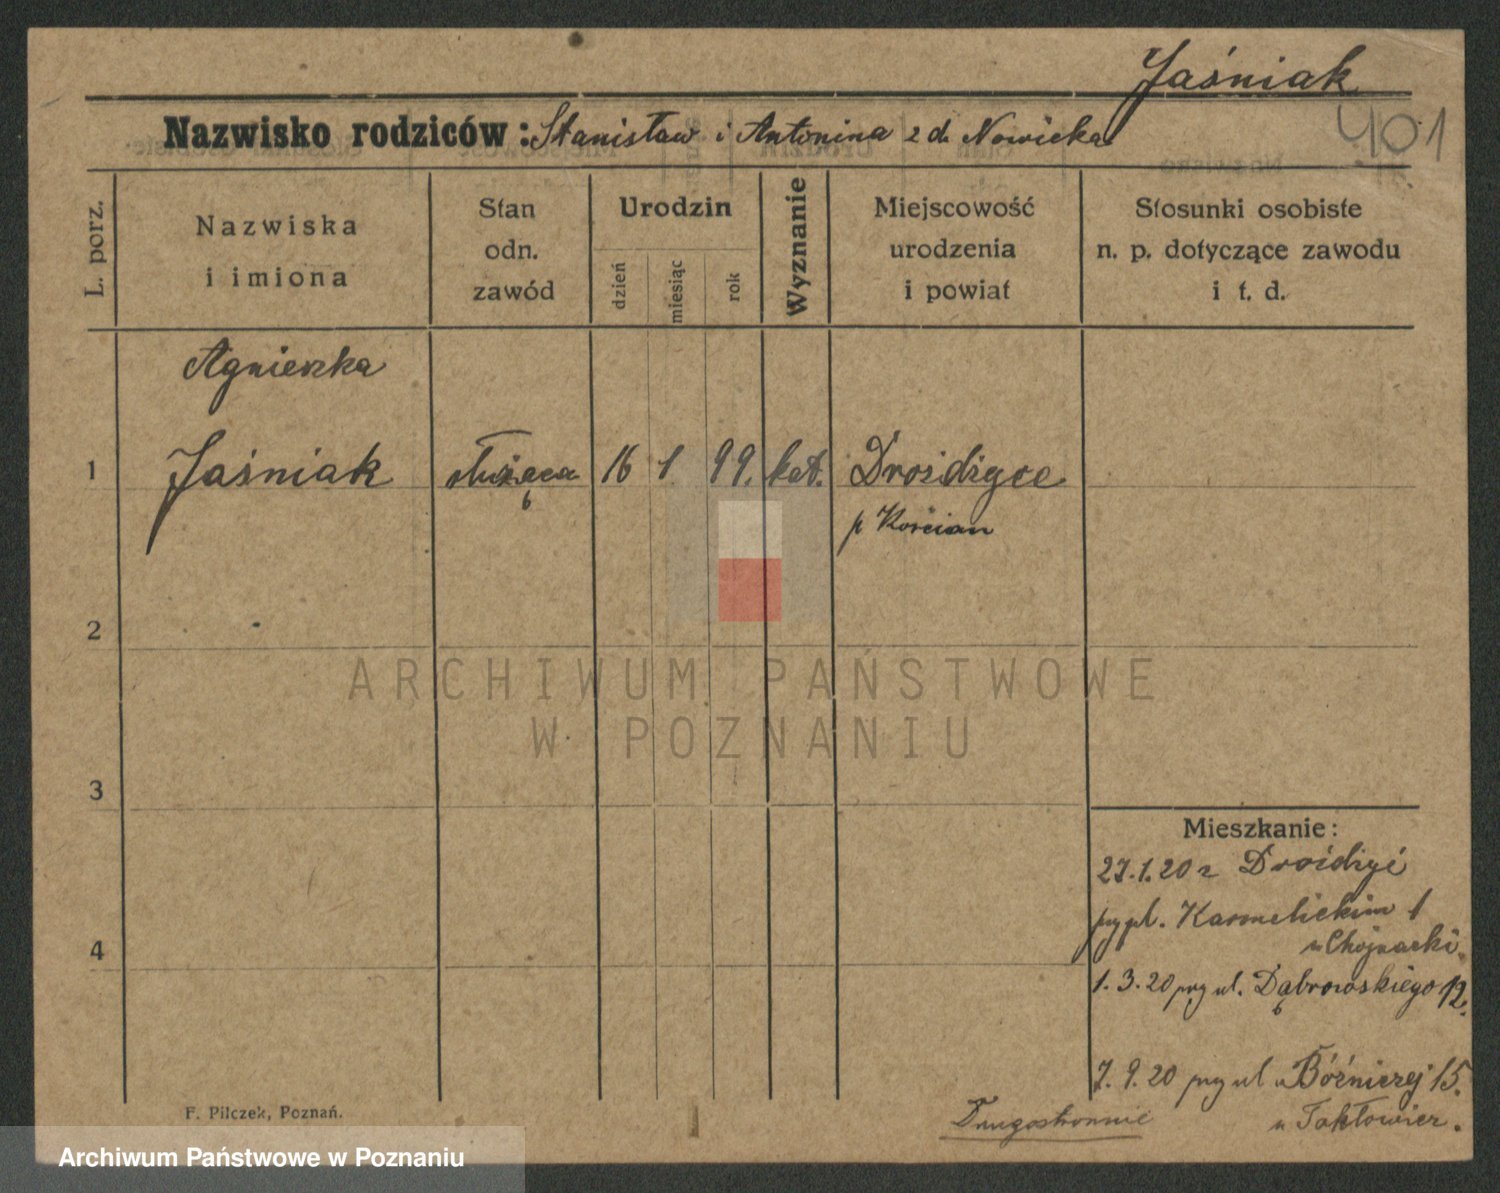 Jaśniak
401
Nazwisko rodziców: Stanisław i Antonina z d. Nowicka
L. porz.
Nazwiska
i imiona
Stan
odn.
zawód
Urodzin
dzień
miesiąc
rok
Wyznanie
Miejscowość
urodzenia
i powiat
Stosunki osobiste
n. p. dotyczące zawodu
i t. d.
Agnieszka
1 Jaśniak służąca 16 1. 99. kat. Drożdżyce
p Kościan
2
3
4
Mieszkanie:
27.1.20 z
przy pl. Karmelickim 1
u Chojnacki.
1.3.20 przy ul. Dąbrowskiego 12.
7.9.20 przy ul Bóźniczej 15.
u
Drugostronnie
F. Pilczek, Poznań.
ARCHIWUM PAŃSTWOWE
W POZNANIU
Archiwum Państwowe w Poznaniu